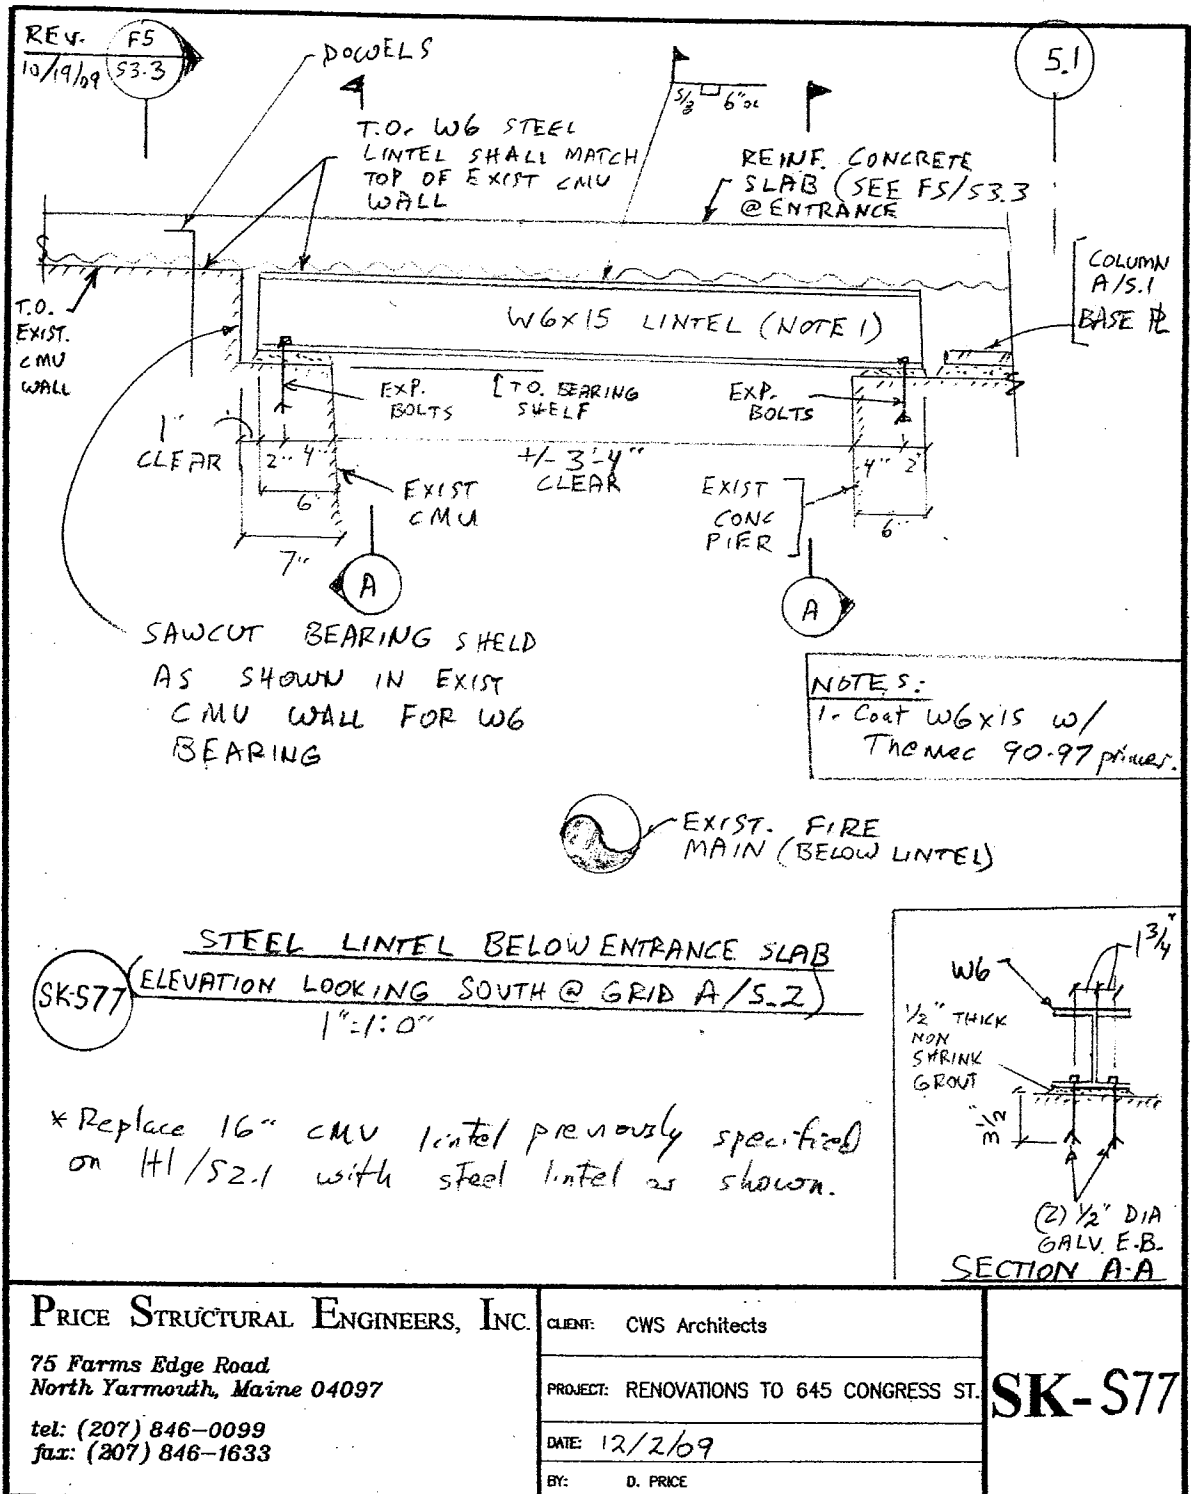 REV. F5
10/19/09 S3.3
DOWELS
5.1
T.O. W6 STEEL
LINTEL SHALL MATCH
TOP OF EXIST CMU
WALL
6" oc
REINF. CONCRETE
SLAB (SEE F5/S3.3
@ ENTRANCE
COLUMN
A/5.1
BASE PL
T.O.
EXIST.
CMU
WALL
W6X15 LINTEL (NOTE 1)
EXP.
BOLTS
T.O. BEARING
SHELF
EXP.
BOLTS
1"
CLEAR
2" 4"
6"
7"
+/- 3'-4"
CLEAR
4" 2"
6"
EXIST
CMU
EXIST
CONC
PIER
A
A
SAWCUT BEARING SHELD
AS SHOWN IN EXIST
CMU WALL FOR W6
BEARING
NOTES:
1. Coat W6x15 w/
Themec 90-97 primer.
EXIST. FIRE
MAIN (BELOW LINTEL)
STEEL LINTEL BELOW ENTRANCE SLAB
SK-S77
(ELEVATION LOOKING SOUTH @ GRID A/5.2)
1"=1'-0"
* Replace 16" CMU lintel previously specified
on H1/S2.1 with steel lintel as shown.
1 3/4"
W6
1/2" THICK
NON
SHRINK
GROUT
3 1/2"
(2) 1/2" DIA
GALV. E.B.
SECTION A-A
PRICE STRUCTURAL ENGINEERS, INC.
75 Farms Edge Road
North Yarmouth, Maine 04097
tel: (207) 846-0099
fax: (207) 846-1633
CLIENT: CWS Architects
PROJECT: RENOVATIONS TO 645 CONGRESS ST.
DATE: 12/2/09
BY: D. PRICE
SK-S77